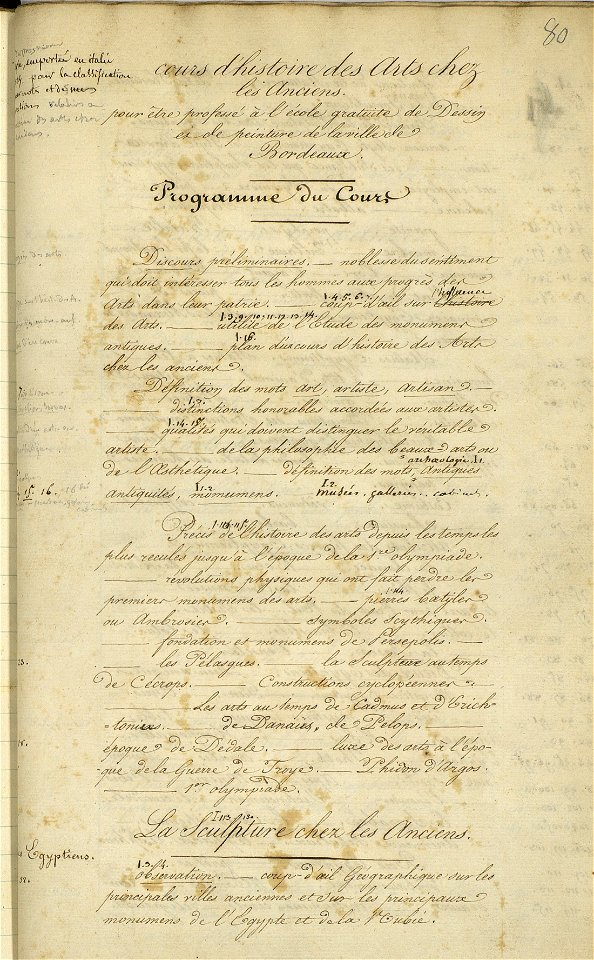 80
importée en italie
pour la classification
cours d'histoire des Arts chez
les Anciens.
pour être professé à l'école gratuite de Dessin
et de peinture de la ville de
Bordeaux.
Programme du Cours
Discours préliminaires. — noblesse du sentiment
qui doit intéresser tous les hommes aux progrès des
l'influence
Arts dans leur patrie. — coup d'œil sur l'histoire
des Arts. — utilité de l'Etude des monumens
antiques. — plan d'un cours d'histoire des Arts
chez les anciens.
Définition des mots art, artiste, artisan. —
— distinctions honorables accordées aux artistes.
— qualités qui doivent distinguer le véritable
artiste. — de la philosophie des beaux arts ou
archæologie I.1.
de l'Œsthétique. — définition des mots, Antiques
15. 16.
antiquités, monumens. musées, galleries, cabinets.
Précis de l'histoire des arts depuis les temps les
plus reculés jusqu'à l'époque de la 1ere olympiade.
— révolutions physiques qui ont fait perdre les
premiers monumens des arts. — pierres Bœtyles
ou Ambrosies. — symboles Scythiques.
— fondation et monumens de Persépolis. —
— les Pélasques. — la Sculpture au temps
de Cécrops. — Constructions cyclopéennes. —
— Les arts au temps de Cadmus et d'Erich-
tonius. — de Danaüs, de Pelops. —
époque de Dédale. — luxe des arts à l'épo-
que de la Guerre de Troye. — Phidon d'Argos.
— 1ere olympiade.
La Sculpture chez les Anciens.
Egyptiens.
observation. — coup d'œil Géographique sur les
principales villes anciennes et sur les principaux
monumens de l'Egypte et de la Nubie.